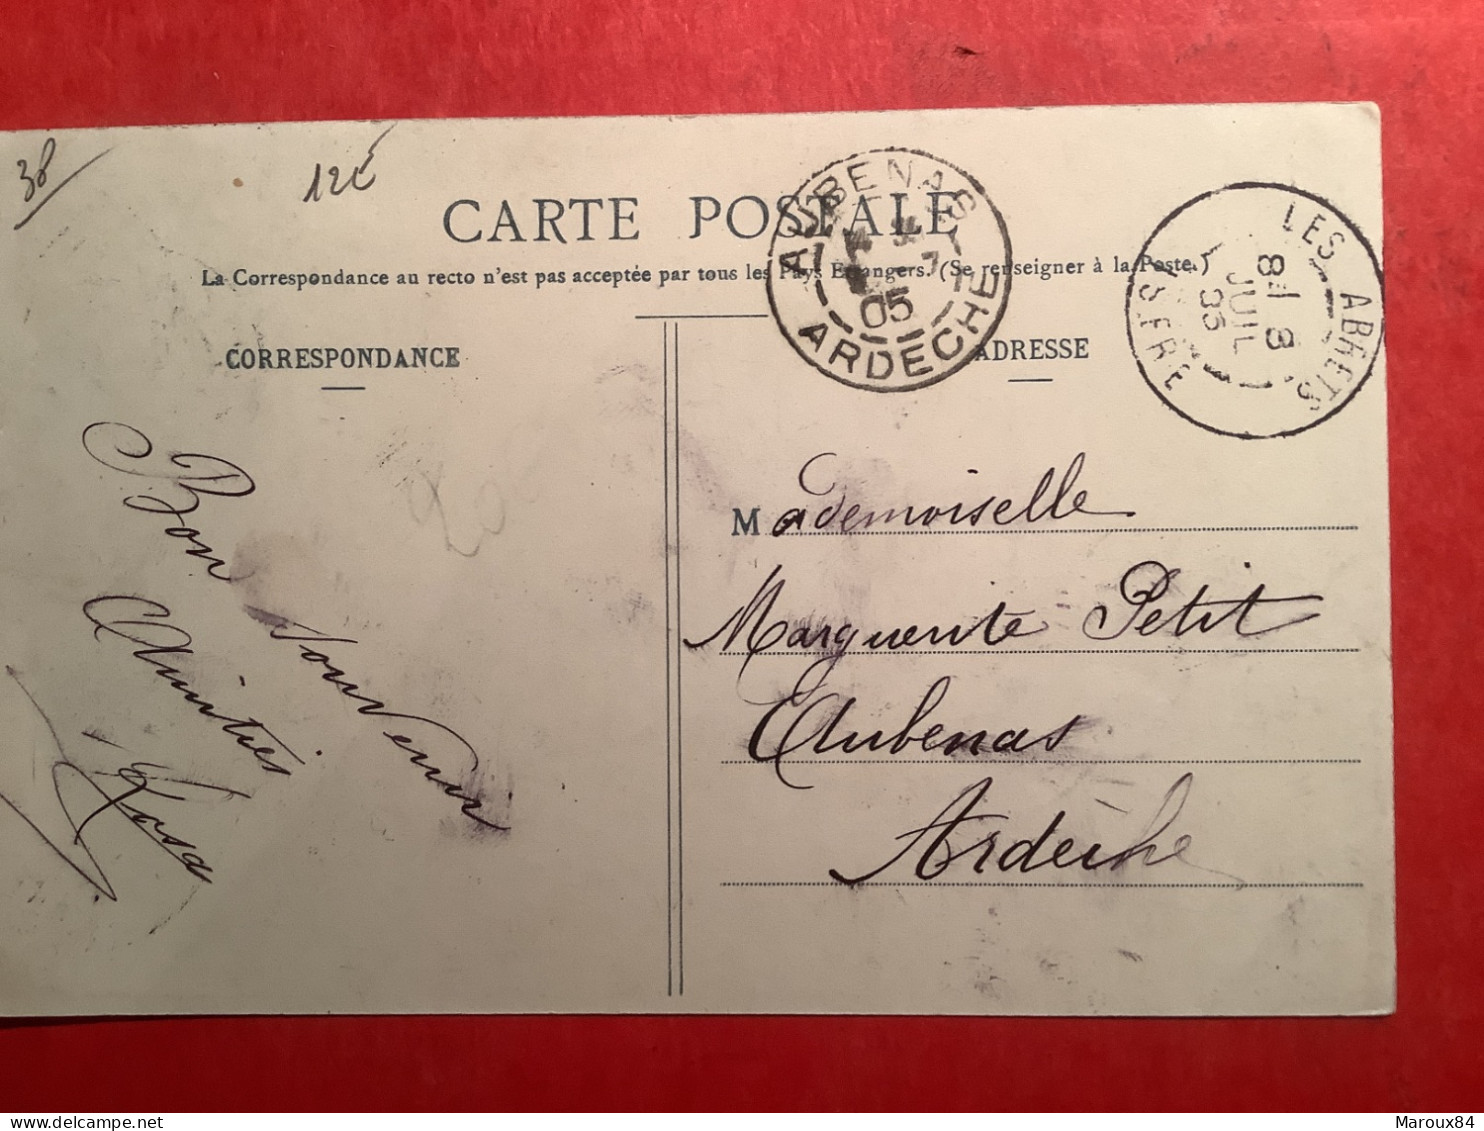 38
12€
CARTE POSTALE
La Correspondance au recto n'est pas acceptée par tous les Pays Etrangers. (Se renseigner à la Poste.)
AUBENAS
7
05
ARDÈCHE
LES ABRETS
8 3
JUIL
ISÈRE
CORRESPONDANCE
Bon Souvenir
Amitiés
Rosa
ADRESSE
Mademoiselle
Marguerite Petit
Aubenas
Ardèche
Maroux84